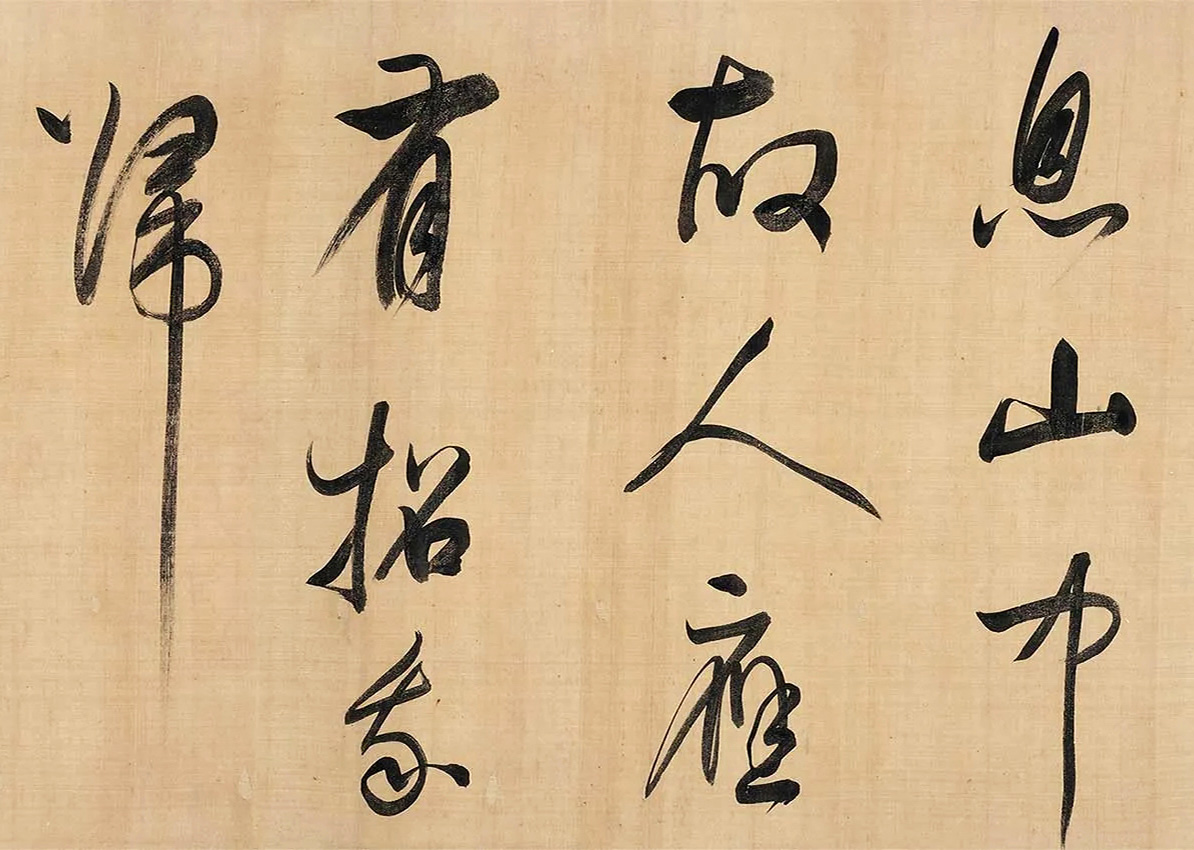 息山中
故人應
有招我
歸